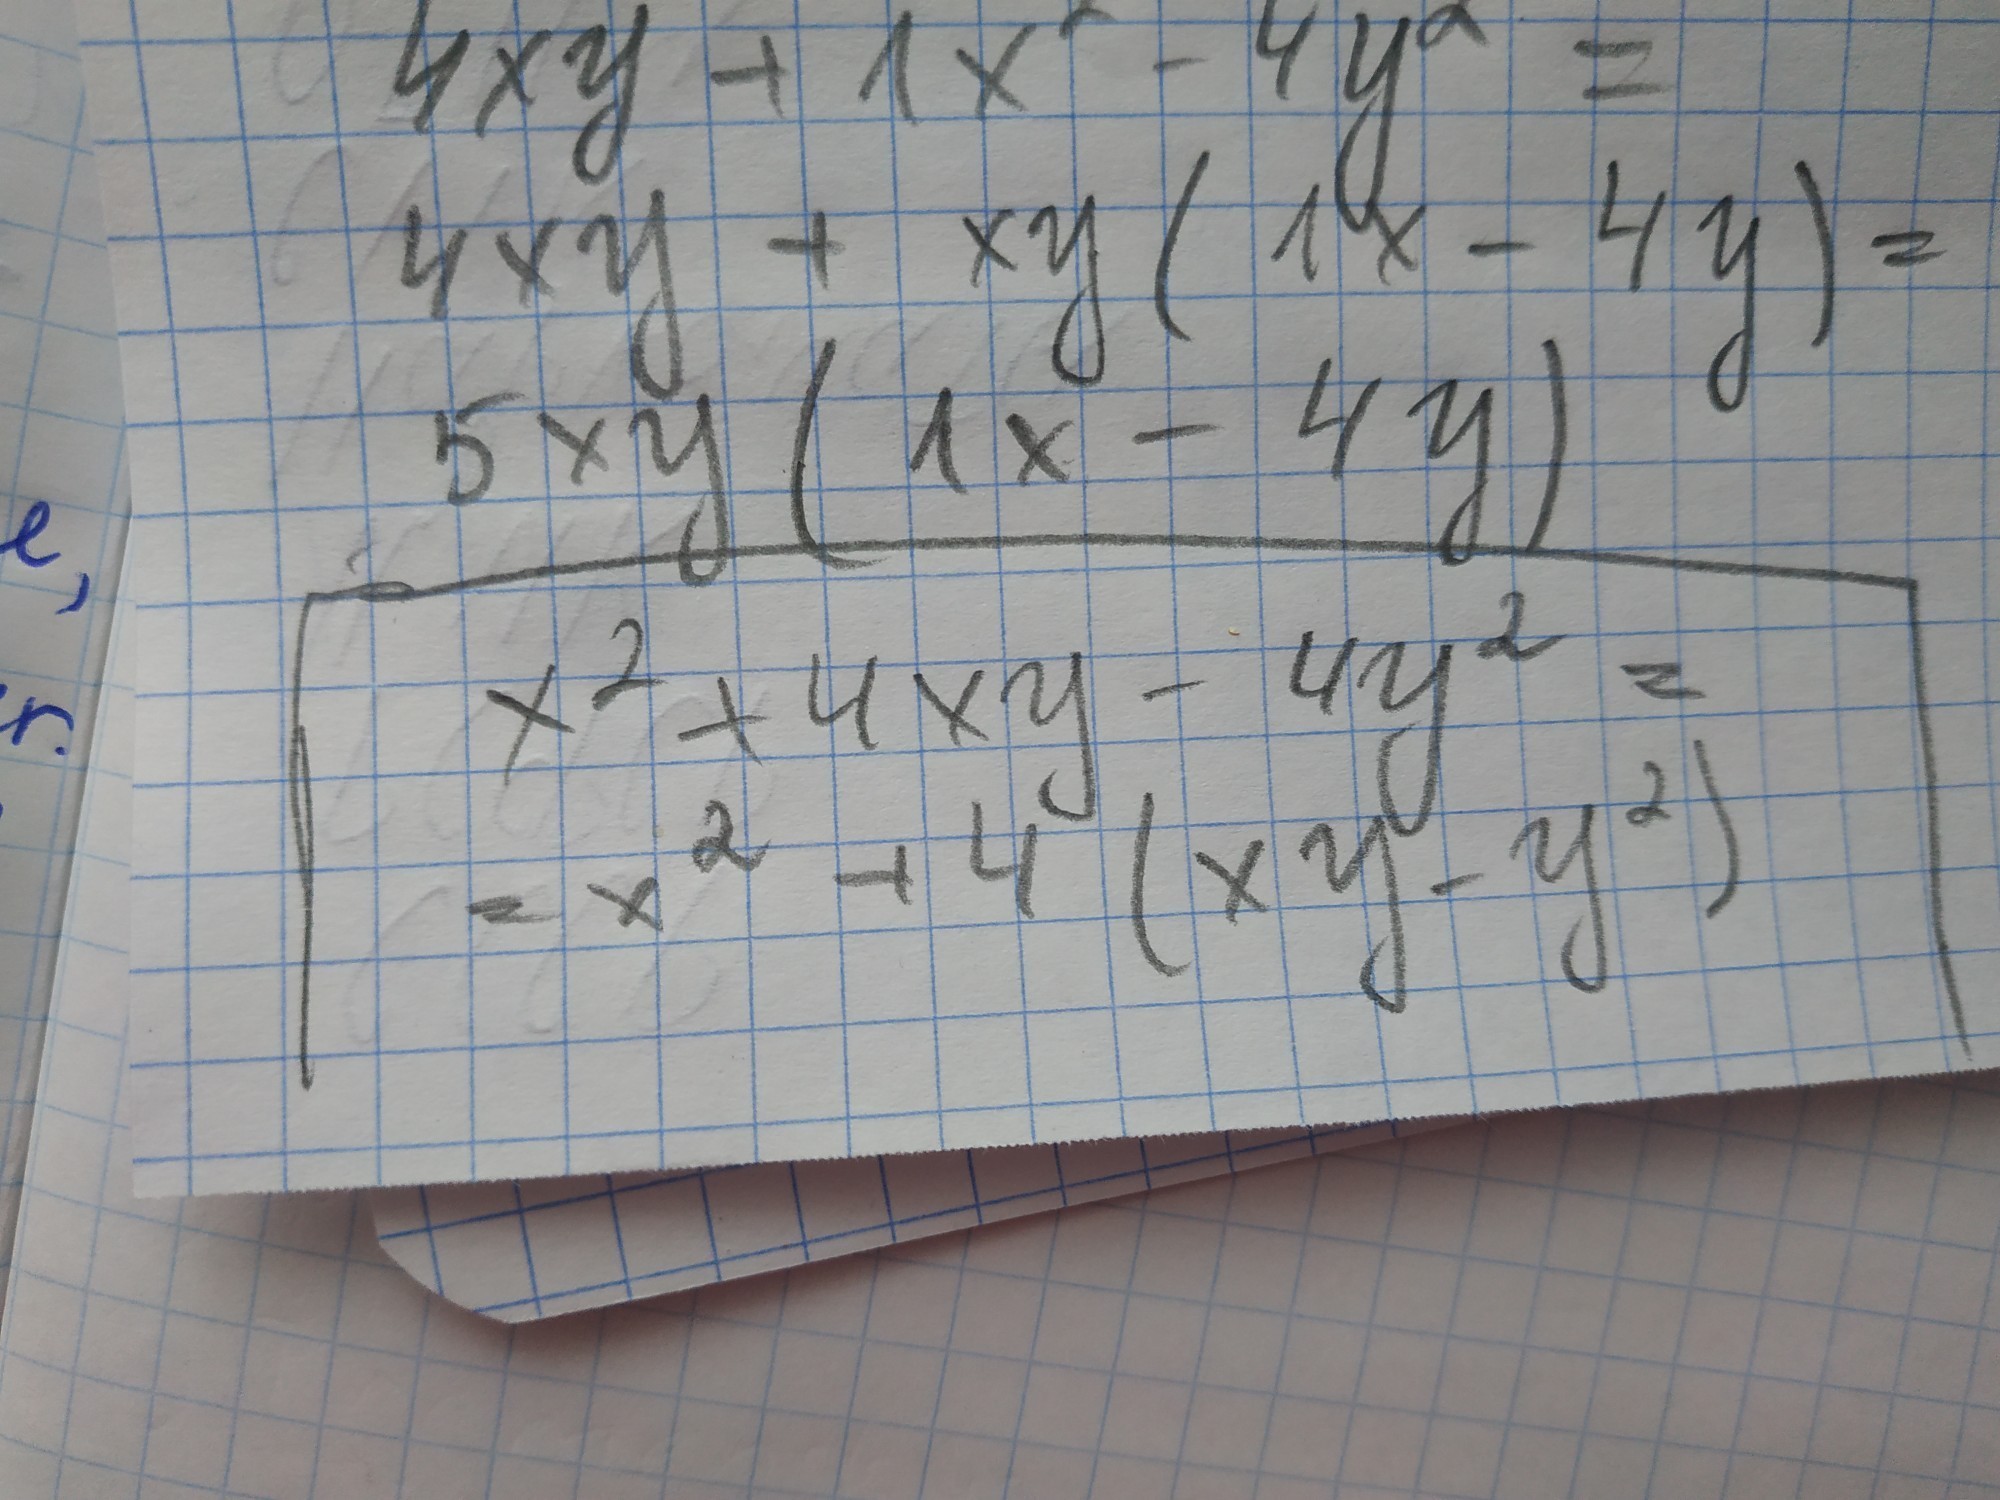 4xy + 1x² - 4y² =
4xy + xy (1x - 4y) =
5xy (1x - 4y)
x² + 4xy - 4y² =
= x² + 4 (xy - y²)
e,
r.